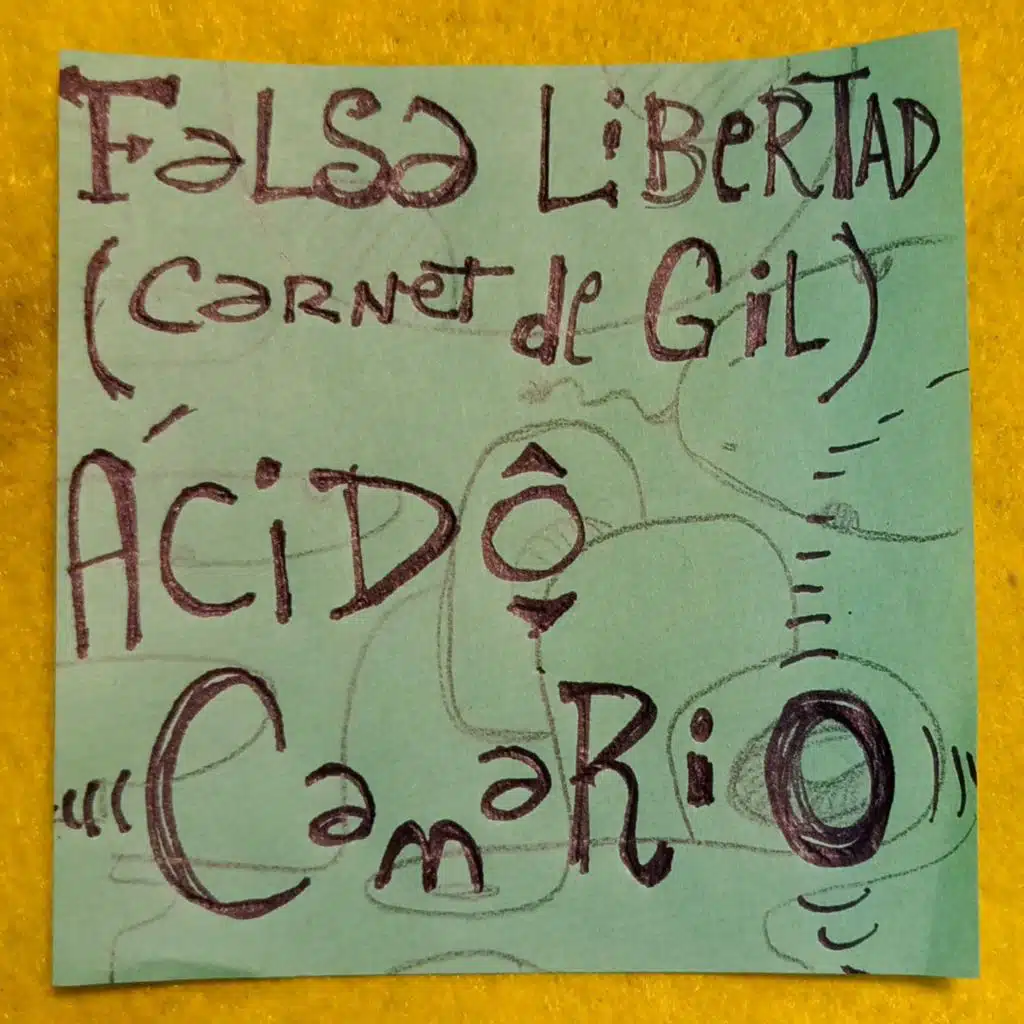 FaLSa LiBeRTAD
(CaRNeT de GiL)
ÁCiDO
CamaRiO